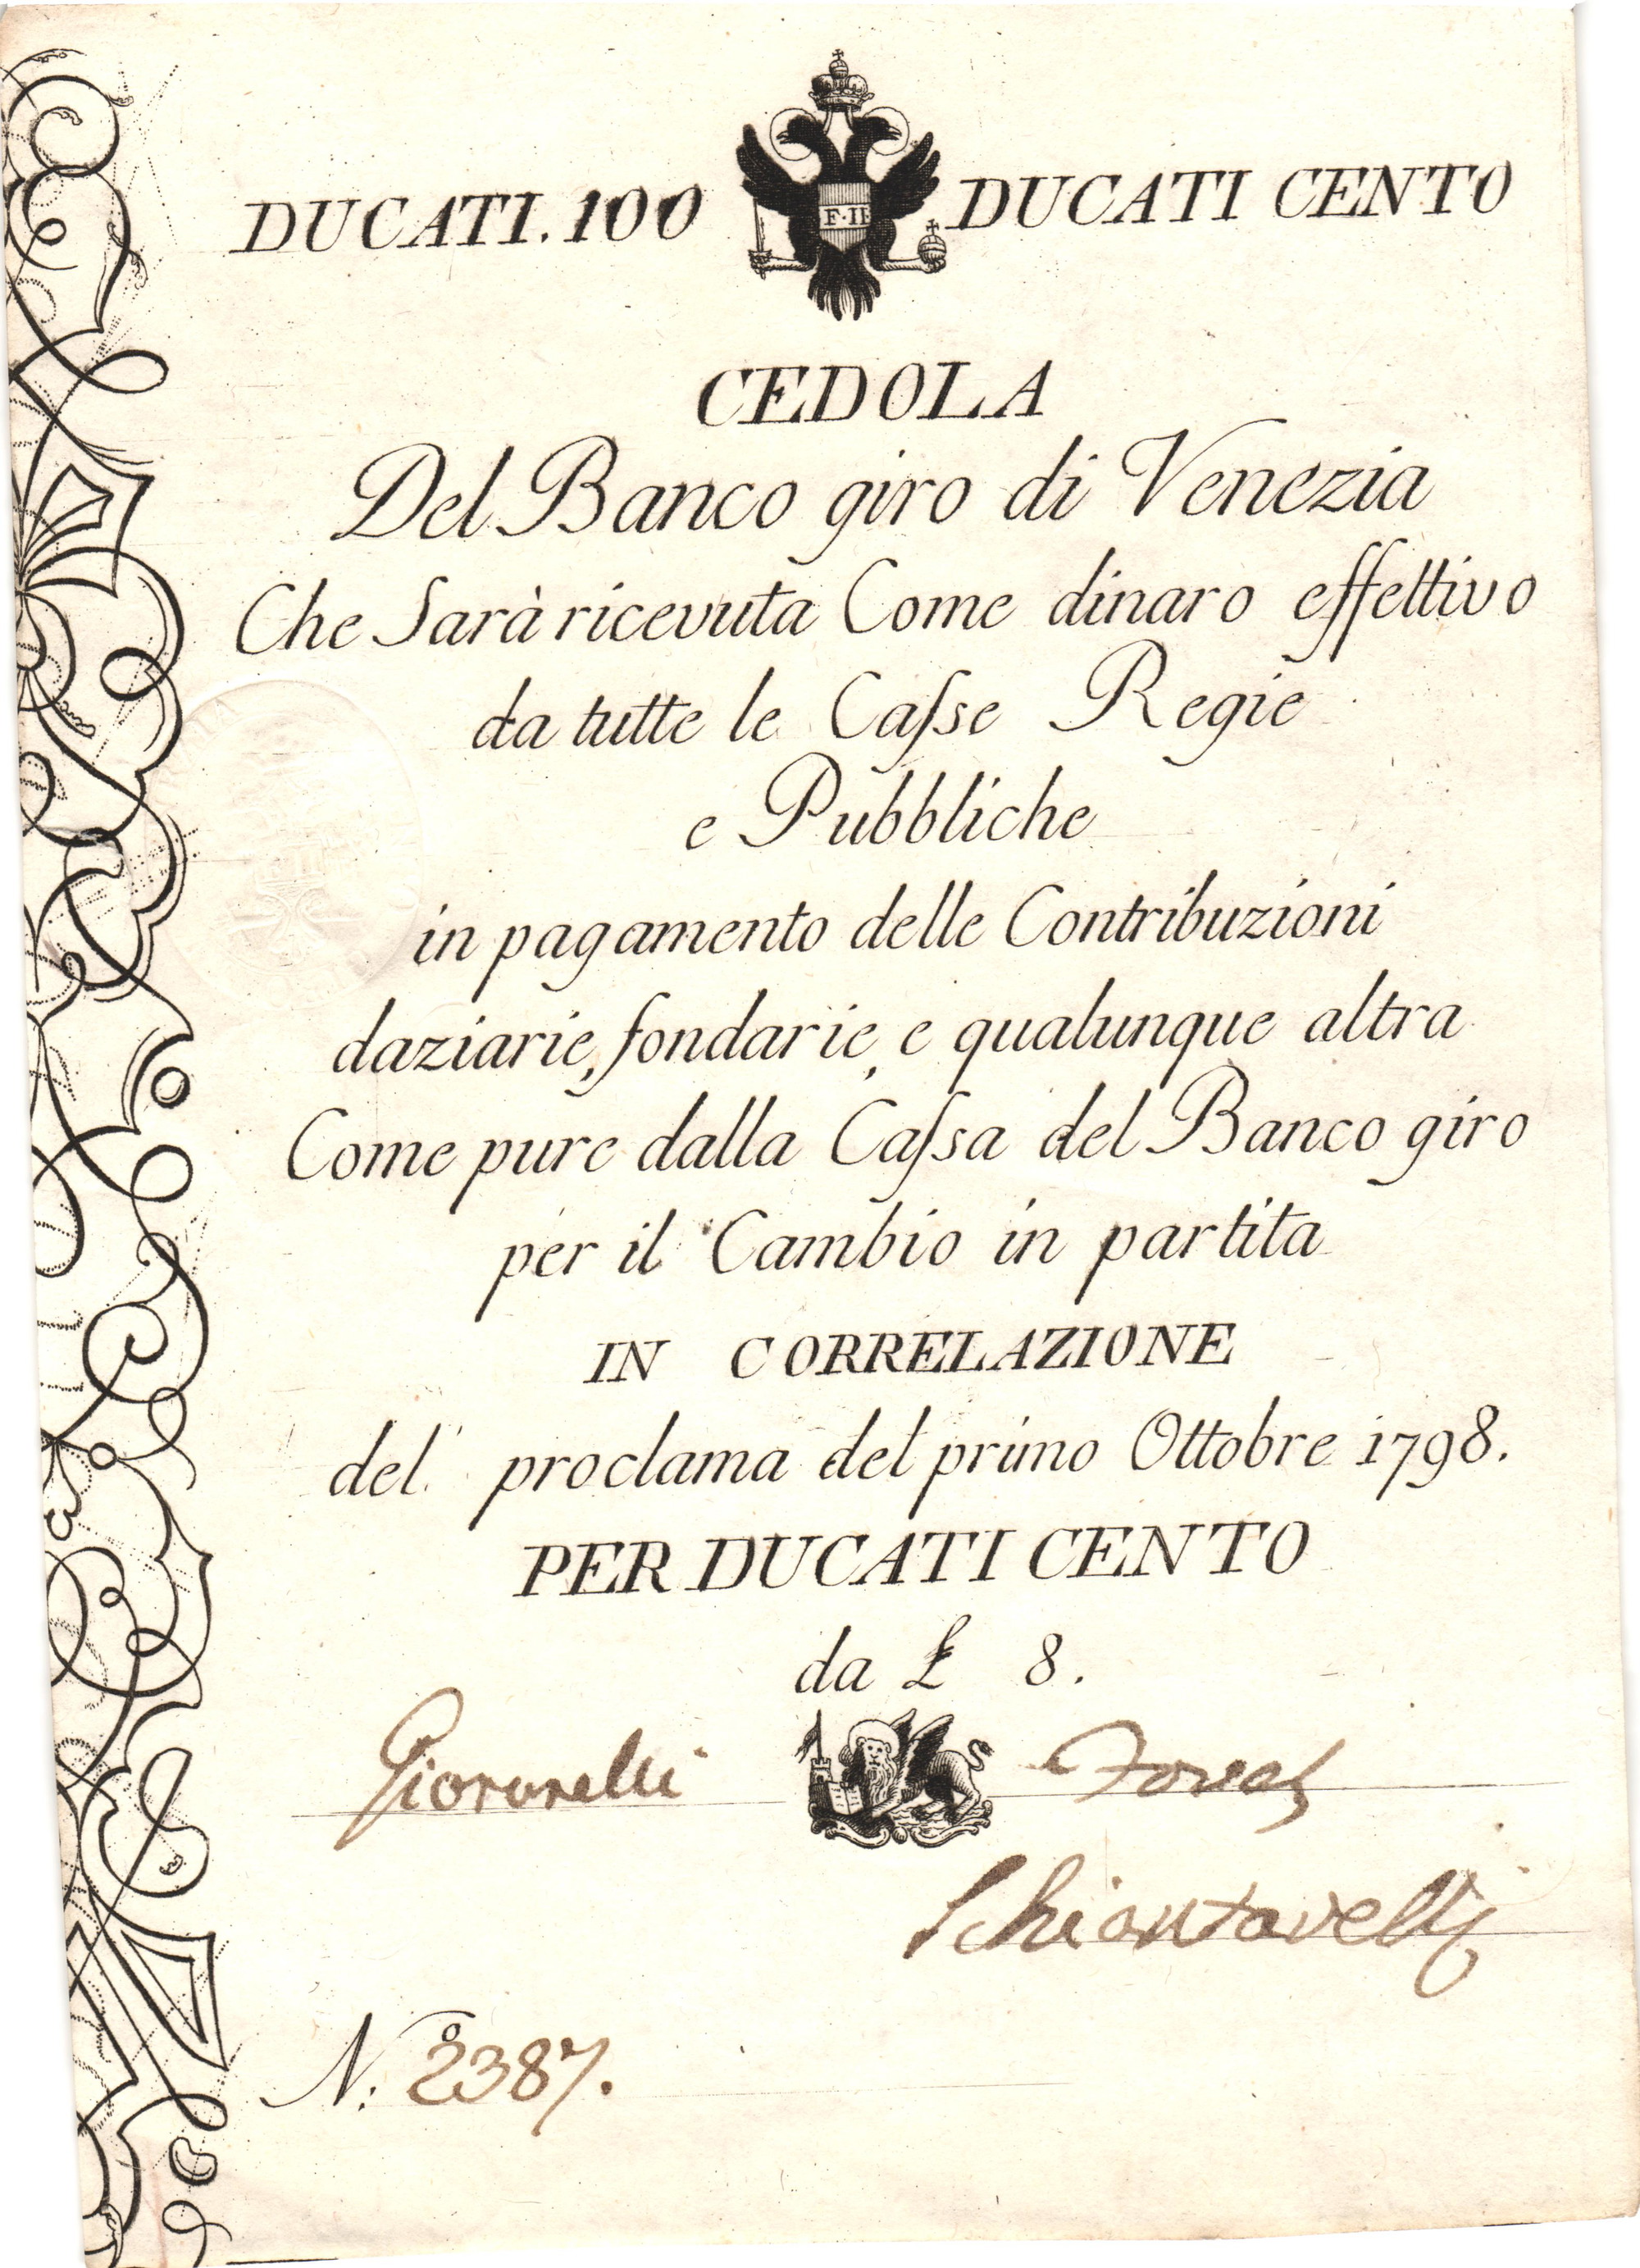 DUCATI. 100 F·II DUCATI CENTO
CEDOLA
Del Banco giro di Venezia
Che Sarà ricevuta Come dinaro effettivo
da tutte le Caſse Regie
e Pubbliche
in pagamento delle Contribuzioni
daziarie, fondarie, e qualunque altra
Come pure dalla Caſsa del Banco giro
per il Cambio in partita
IN CORRELAZIONE
del proclama del primo Ottobre 1798.
PER DUCATI CENTO
da £ 8.
Schiantavelli
N.º 2387.